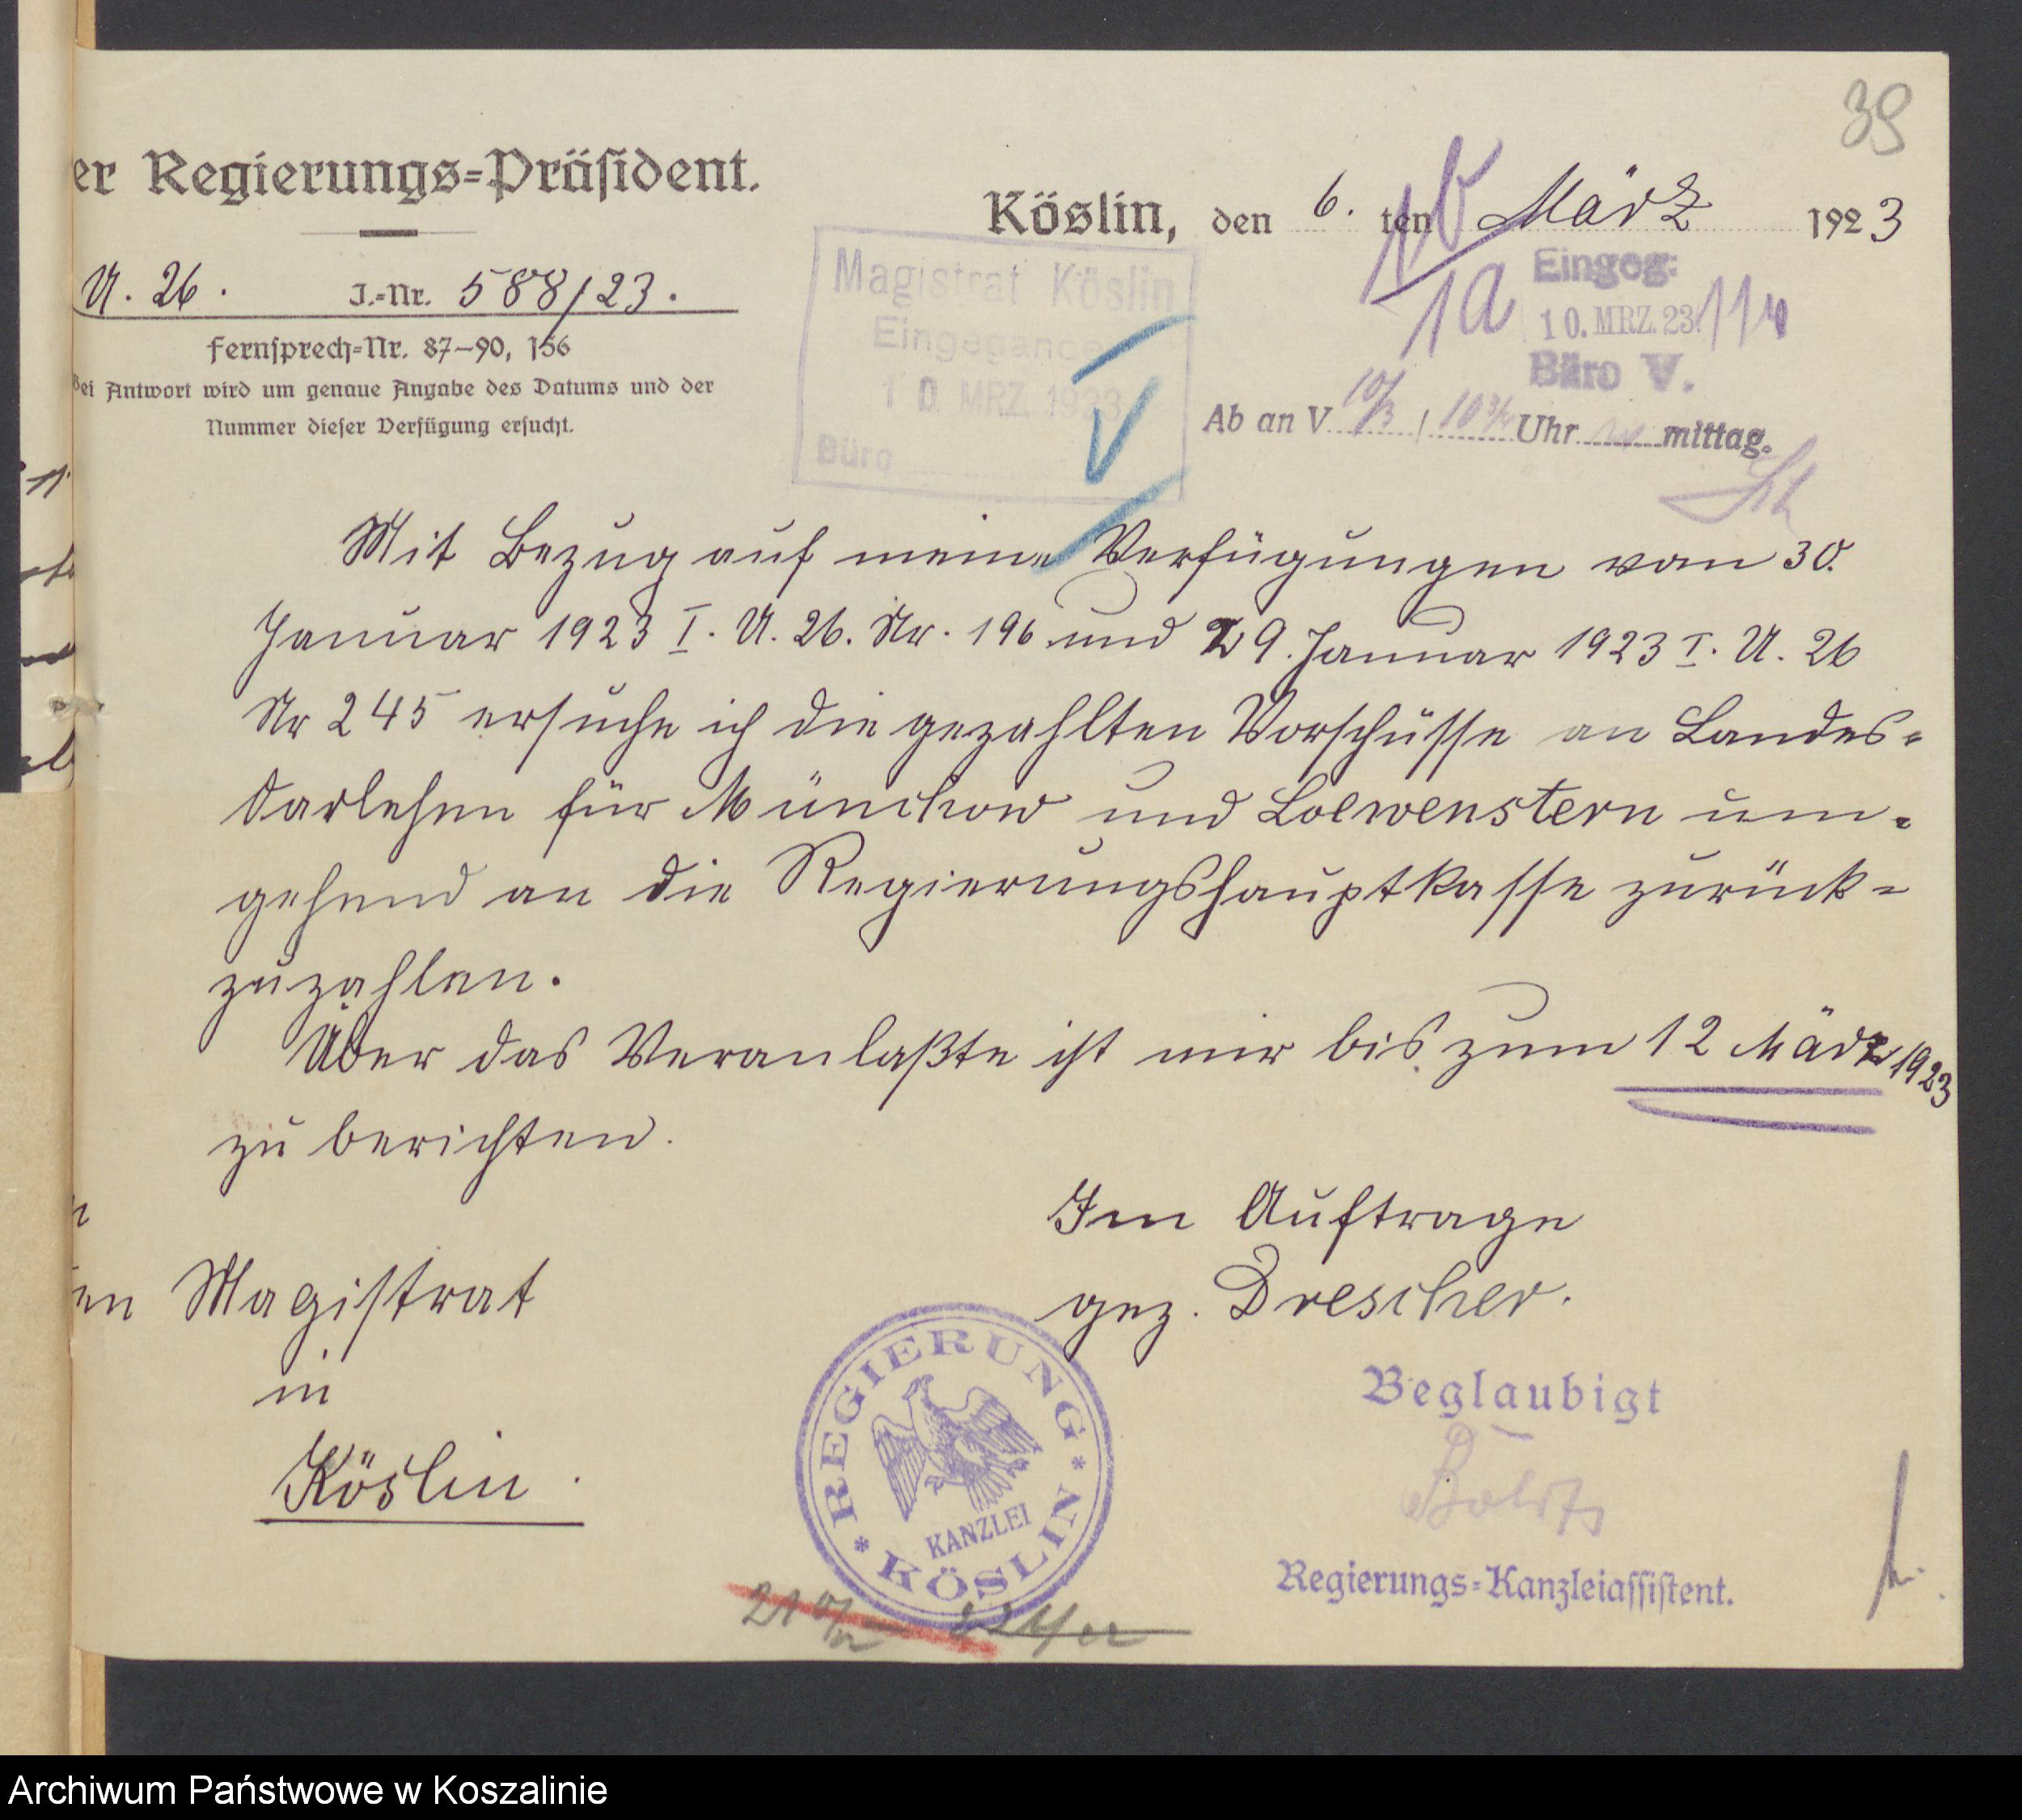 39
er Regierungs=Präsident.
Köslin, den 6. ten März 1923
U. 26. J.=Nr. 588/23.
Fernsprech=Nr. 87–90, 156
Bei Antwort wird um genaue Angabe des Datums und der
Nummer dieser Verfügung ersucht.
Magistrat Köslin
Eingegangen
10. MRZ. 1923
Büro V
1a
Eingeg:
10. MRZ. 23
Büro V.
Ab an V 10/3 10 3/4 Uhr mittag.
Mit Bezug auf meine Verfügungen vom 30.
Januar 1923 I. U. 26. Nr. 196 und 29. Januar 1923 I. U. 26
Nr 245 ersuche ich die gezahlten Vorschüsse an Landes-
darlehen für Münchow und Loewenstern um-
gehend an die Regierungshauptkasse zurück-
zuzahlen.
Über das Veranlaßte ist mir bis zum 12 März 1923
zu berichten.
Im Auftrage
gez. Drescher.
en Magistrat
in
Köslin.
REGIERUNG
KANZLEI
KÖSLIN
Beglaubigt
Regierungs=Kanzleiassistent.
Archiwum Państwowe w Koszalinie